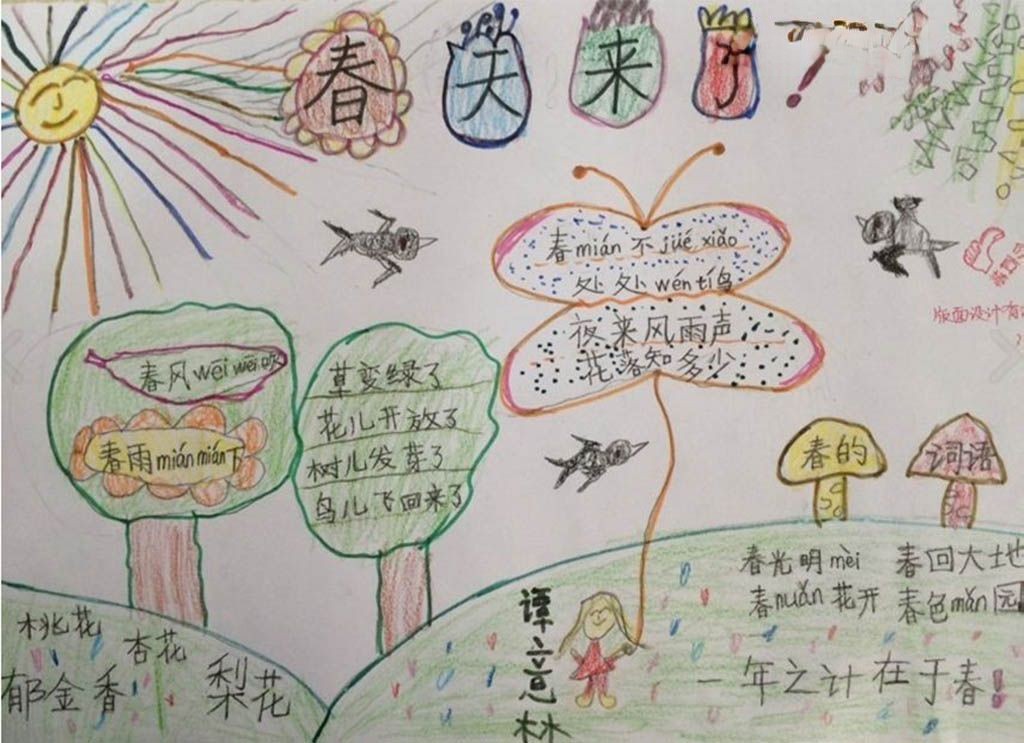 春天来了！
春mián不jué xiǎo
处处wén tí鸟
夜来风雨声
花落知多少
版面设计有
春风wēi wēi吹
春雨mián mián下
草变绿了
花儿开放了
树儿发芽了
鸟儿飞回来了
春的
词语
春光明mèi 春回大地
春nuǎn花开 春色mǎn园
一年之计在于春！
桃花
杏花
郁金香
梨花
谭意林